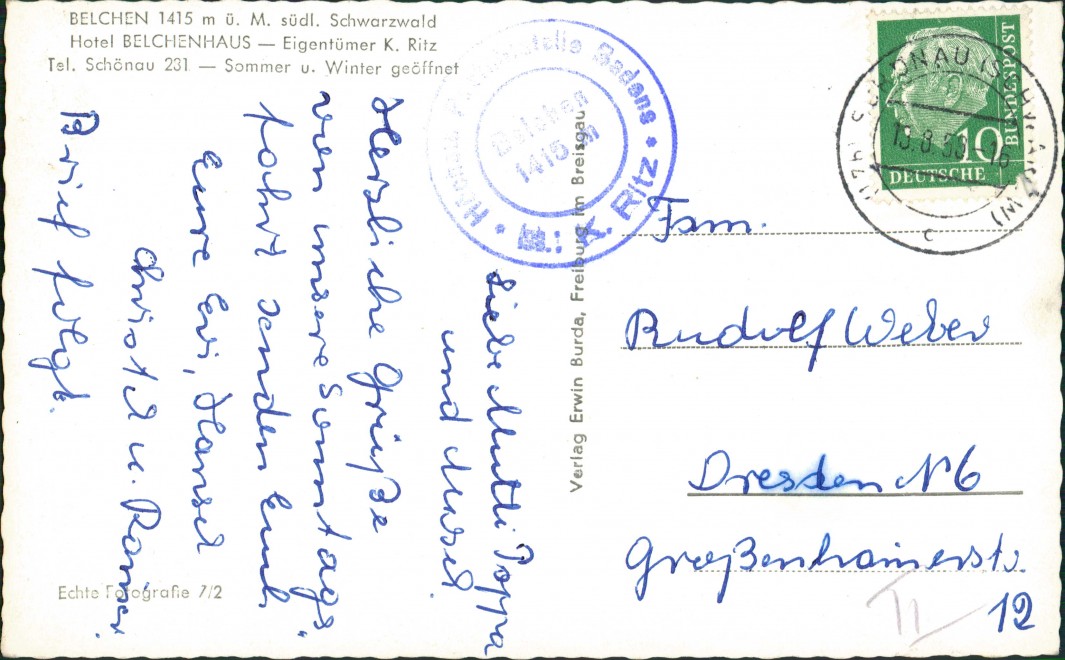 BELCHEN 1415 m ü. M. südl. Schwarzwald
Hotel BELCHENHAUS — Eigentümer K. Ritz
Tel. Schönau 231 — Sommer u. Winter geöffnet
Badens
Belchen
1415 m
K. Ritz
SCHÖNAU (SCHWARZW)
DEUTSCHE
BUNDESPOST
10
c
Liebe Mutti Pappa
und
Herzliche Grüße
von unsere Sonntags
fahrt senden Euch
Eure Evi, Hansel
Christel u.
Brief folgt.
Verlag Erwin Burda, Freiburg im Breisgau
Fam.
Rudolf Weber
Dresden N 6
Großenhainerstr.
12
Echte Fotografie 7/2